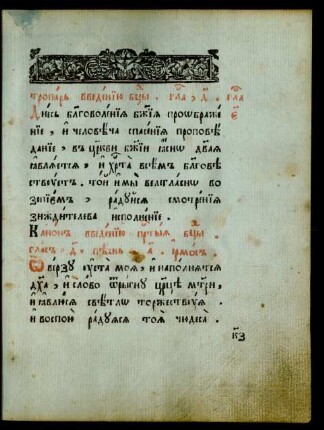 тропарь введению бцы . гла , д . гла
є
Днесь благоволения бжия проѡбраже
ние , и человеча спасения проповѣ
дание , въ цркви бжии ꙗсно двая
ꙗвляется , и хрта всемъ благове
ствуетъ . той и мы велегласно во
зопиемъ , радуйся смотрения
зиждителева исполнение .
Канонъ введению прчтыя бцы .
гласъ . д . пѣснь . а . ирмосъ .
Ѿверзу уста моя , и наполнятся
дха , и слово ѿрыгну црце мтри ,
и ꙗвлюся свѣтло торжествуя .
и воспою радуяся тоя чюдеса .
кз